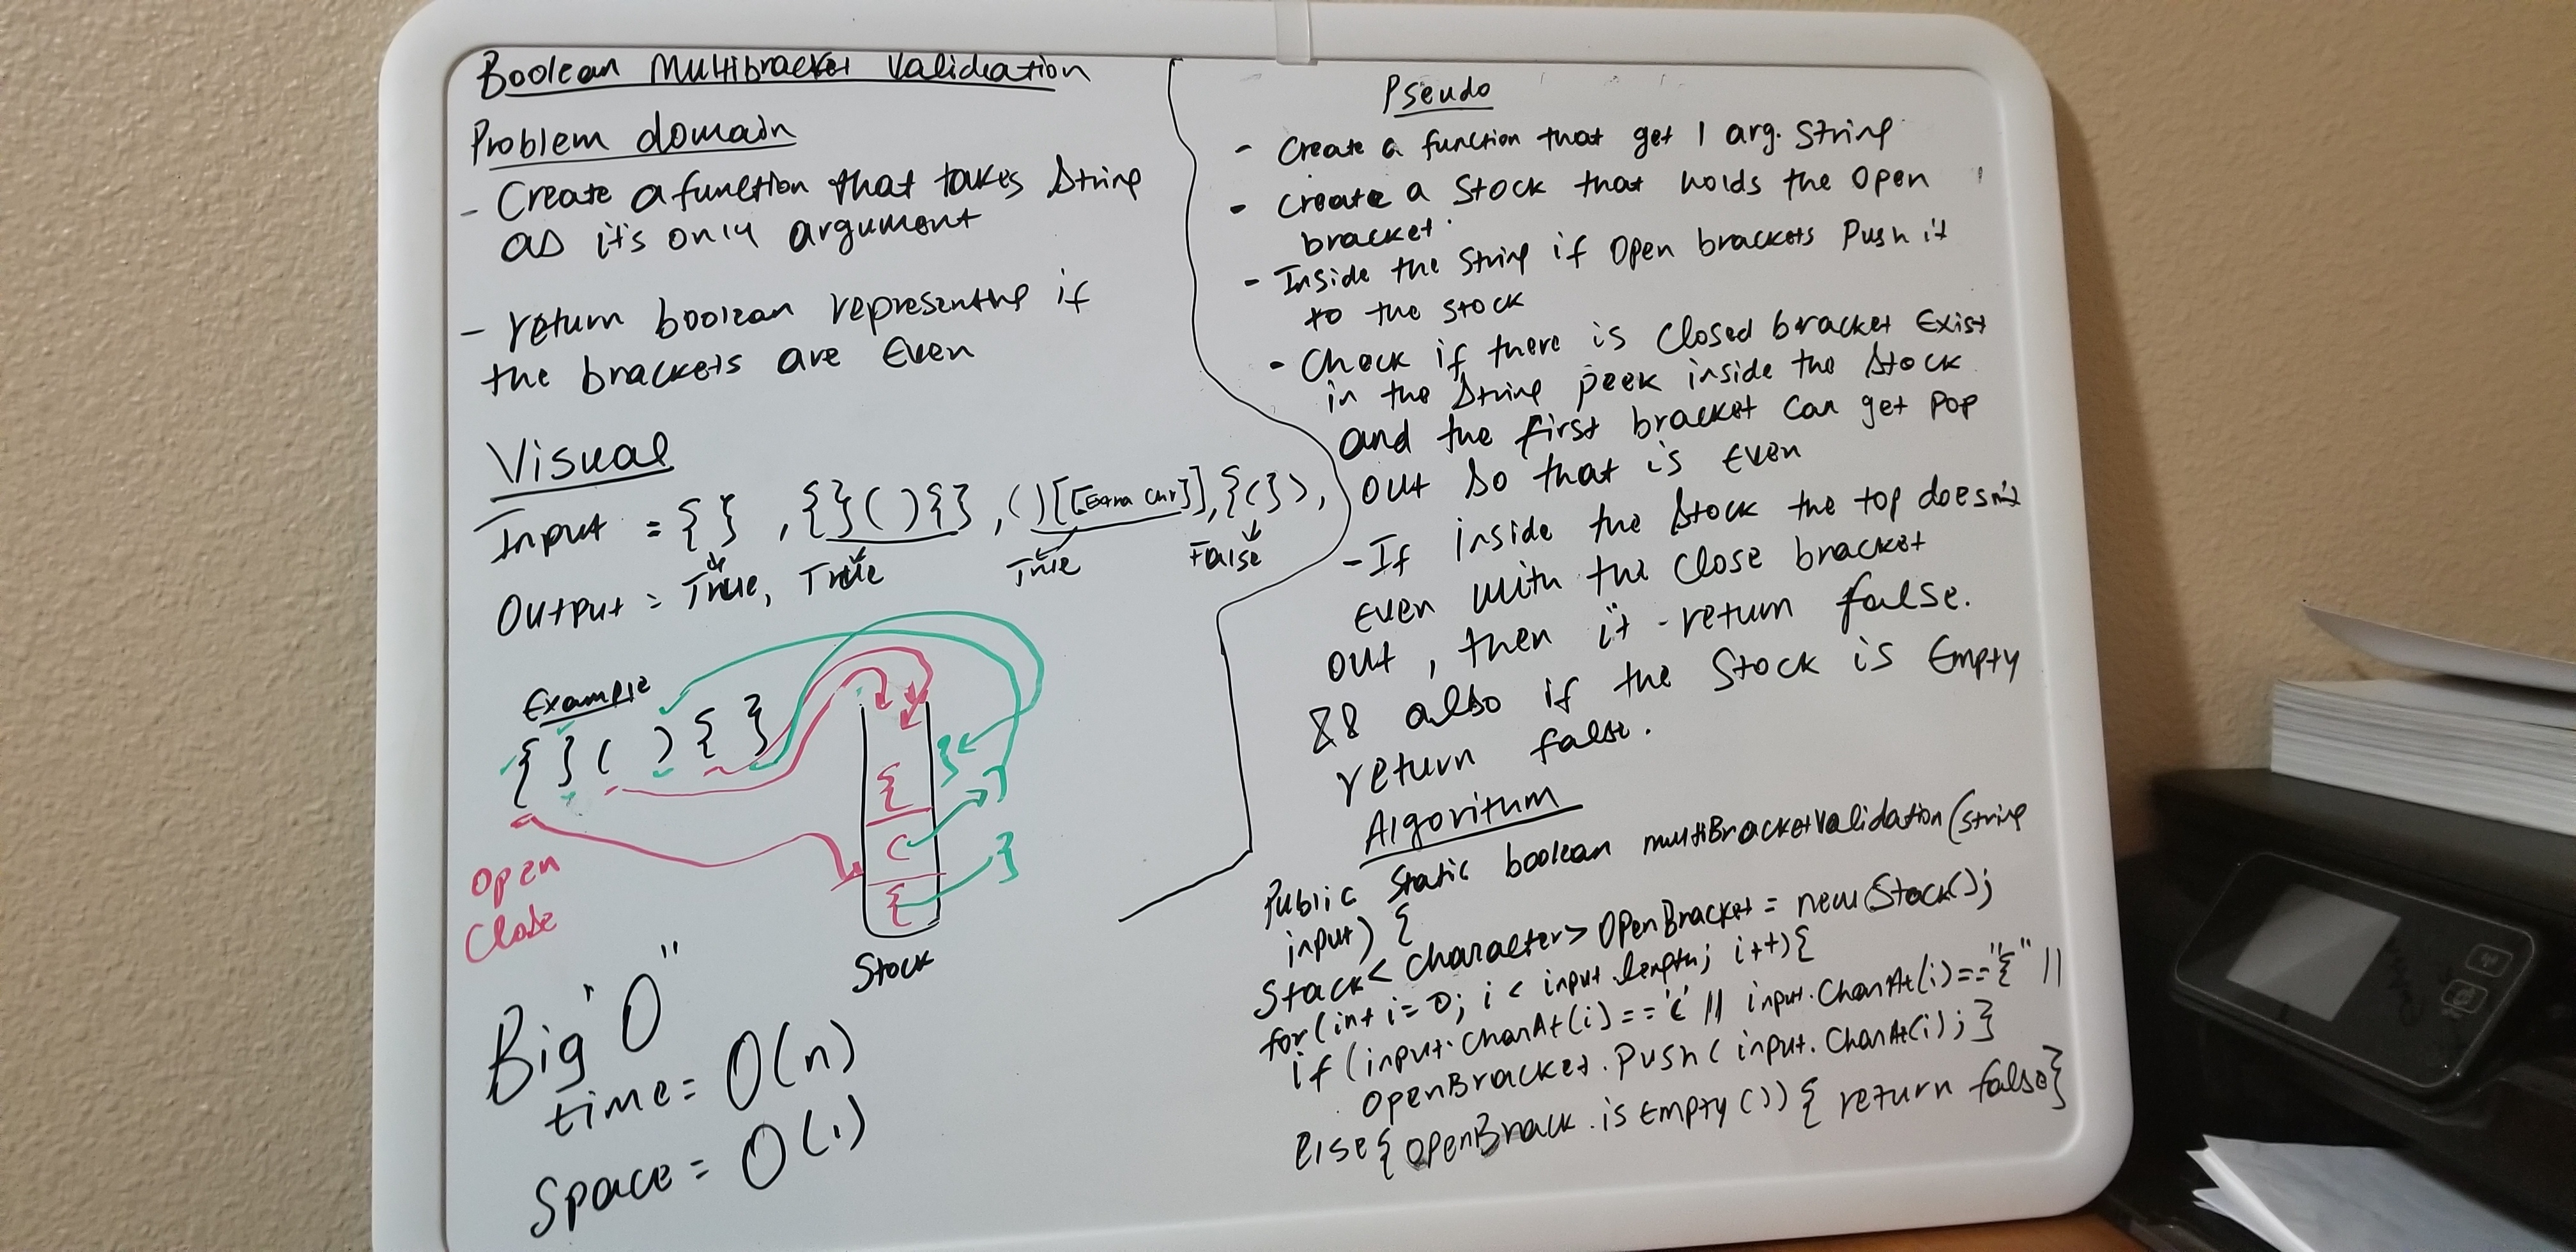 Boolean Multibracket Validation
Problem domain
- Create a function that takes String
as it's only argument
- return boolean representing if
the brackets are Even
Visual
Input = {} , {}(){} , ()[[Extra Chr]], {(}),
True
False
Output = True, True
Example
{ } ( ) { }
{
}
(
)
{
}
Open
Close
Stock
Big "O"
time = O(n)
Space = O(1)
Pseudo
- Create a function that get 1 arg. String
- Create a Stock that holds the Open
bracket.
- Inside the String if Open brackets Push it
to the stock
- Check if there is Closed bracket Exist
in the String peek inside the Stock
and the first bracket can get Pop
out so that is Even
- If inside the Stock the top doesn't
Even with the Close bracket
out, then it return false.
&& also if the Stock is Empty
return false.
Algoritum
Public Static boolean multiBracketValidation(String
input) {
Stack<Character> OpenBracket = new Stack();
for(int i=0; i < input.length; i++){
if(input.CharAt(i)=='(' || input.CharAt(i)=="{" ||
OpenBracket.Push(input.CharAt(i);}
Else{ OpenBrack.isEmpty()){ return false}